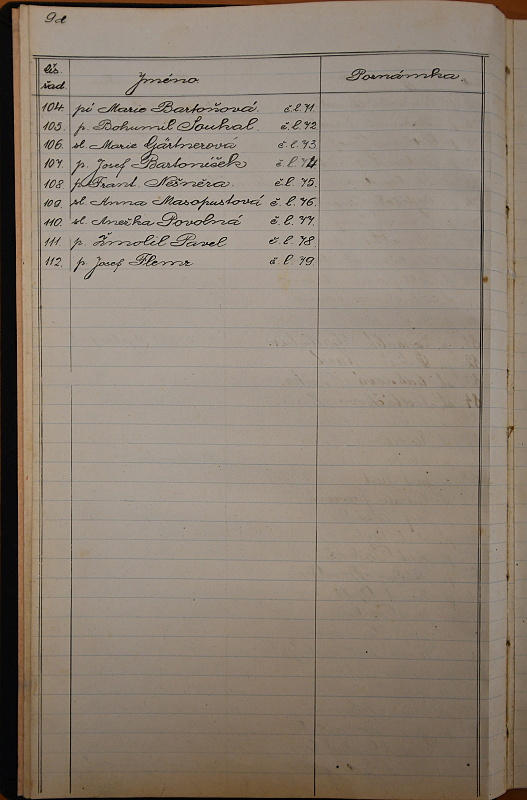 9d
čís. řad. Jméno. Poznámka.
104. pí Marie Bartoňová. č.l. 71.
105. p. Bohumil Souhal. č.l. 72
106. sl. Marie Gärtnerová č.l. 73
107. p. Josef Bartoníšek č.l. 74
108. p. Frant. Nešněra. č.l. 75.
109. sl. Anna Masopustová č.l. 76.
110. sl. Anežka Povolná č.l. 77.
111. p. Žmolil Pavel č.l. 78
112. p. Josef Flemr č.l. 79.